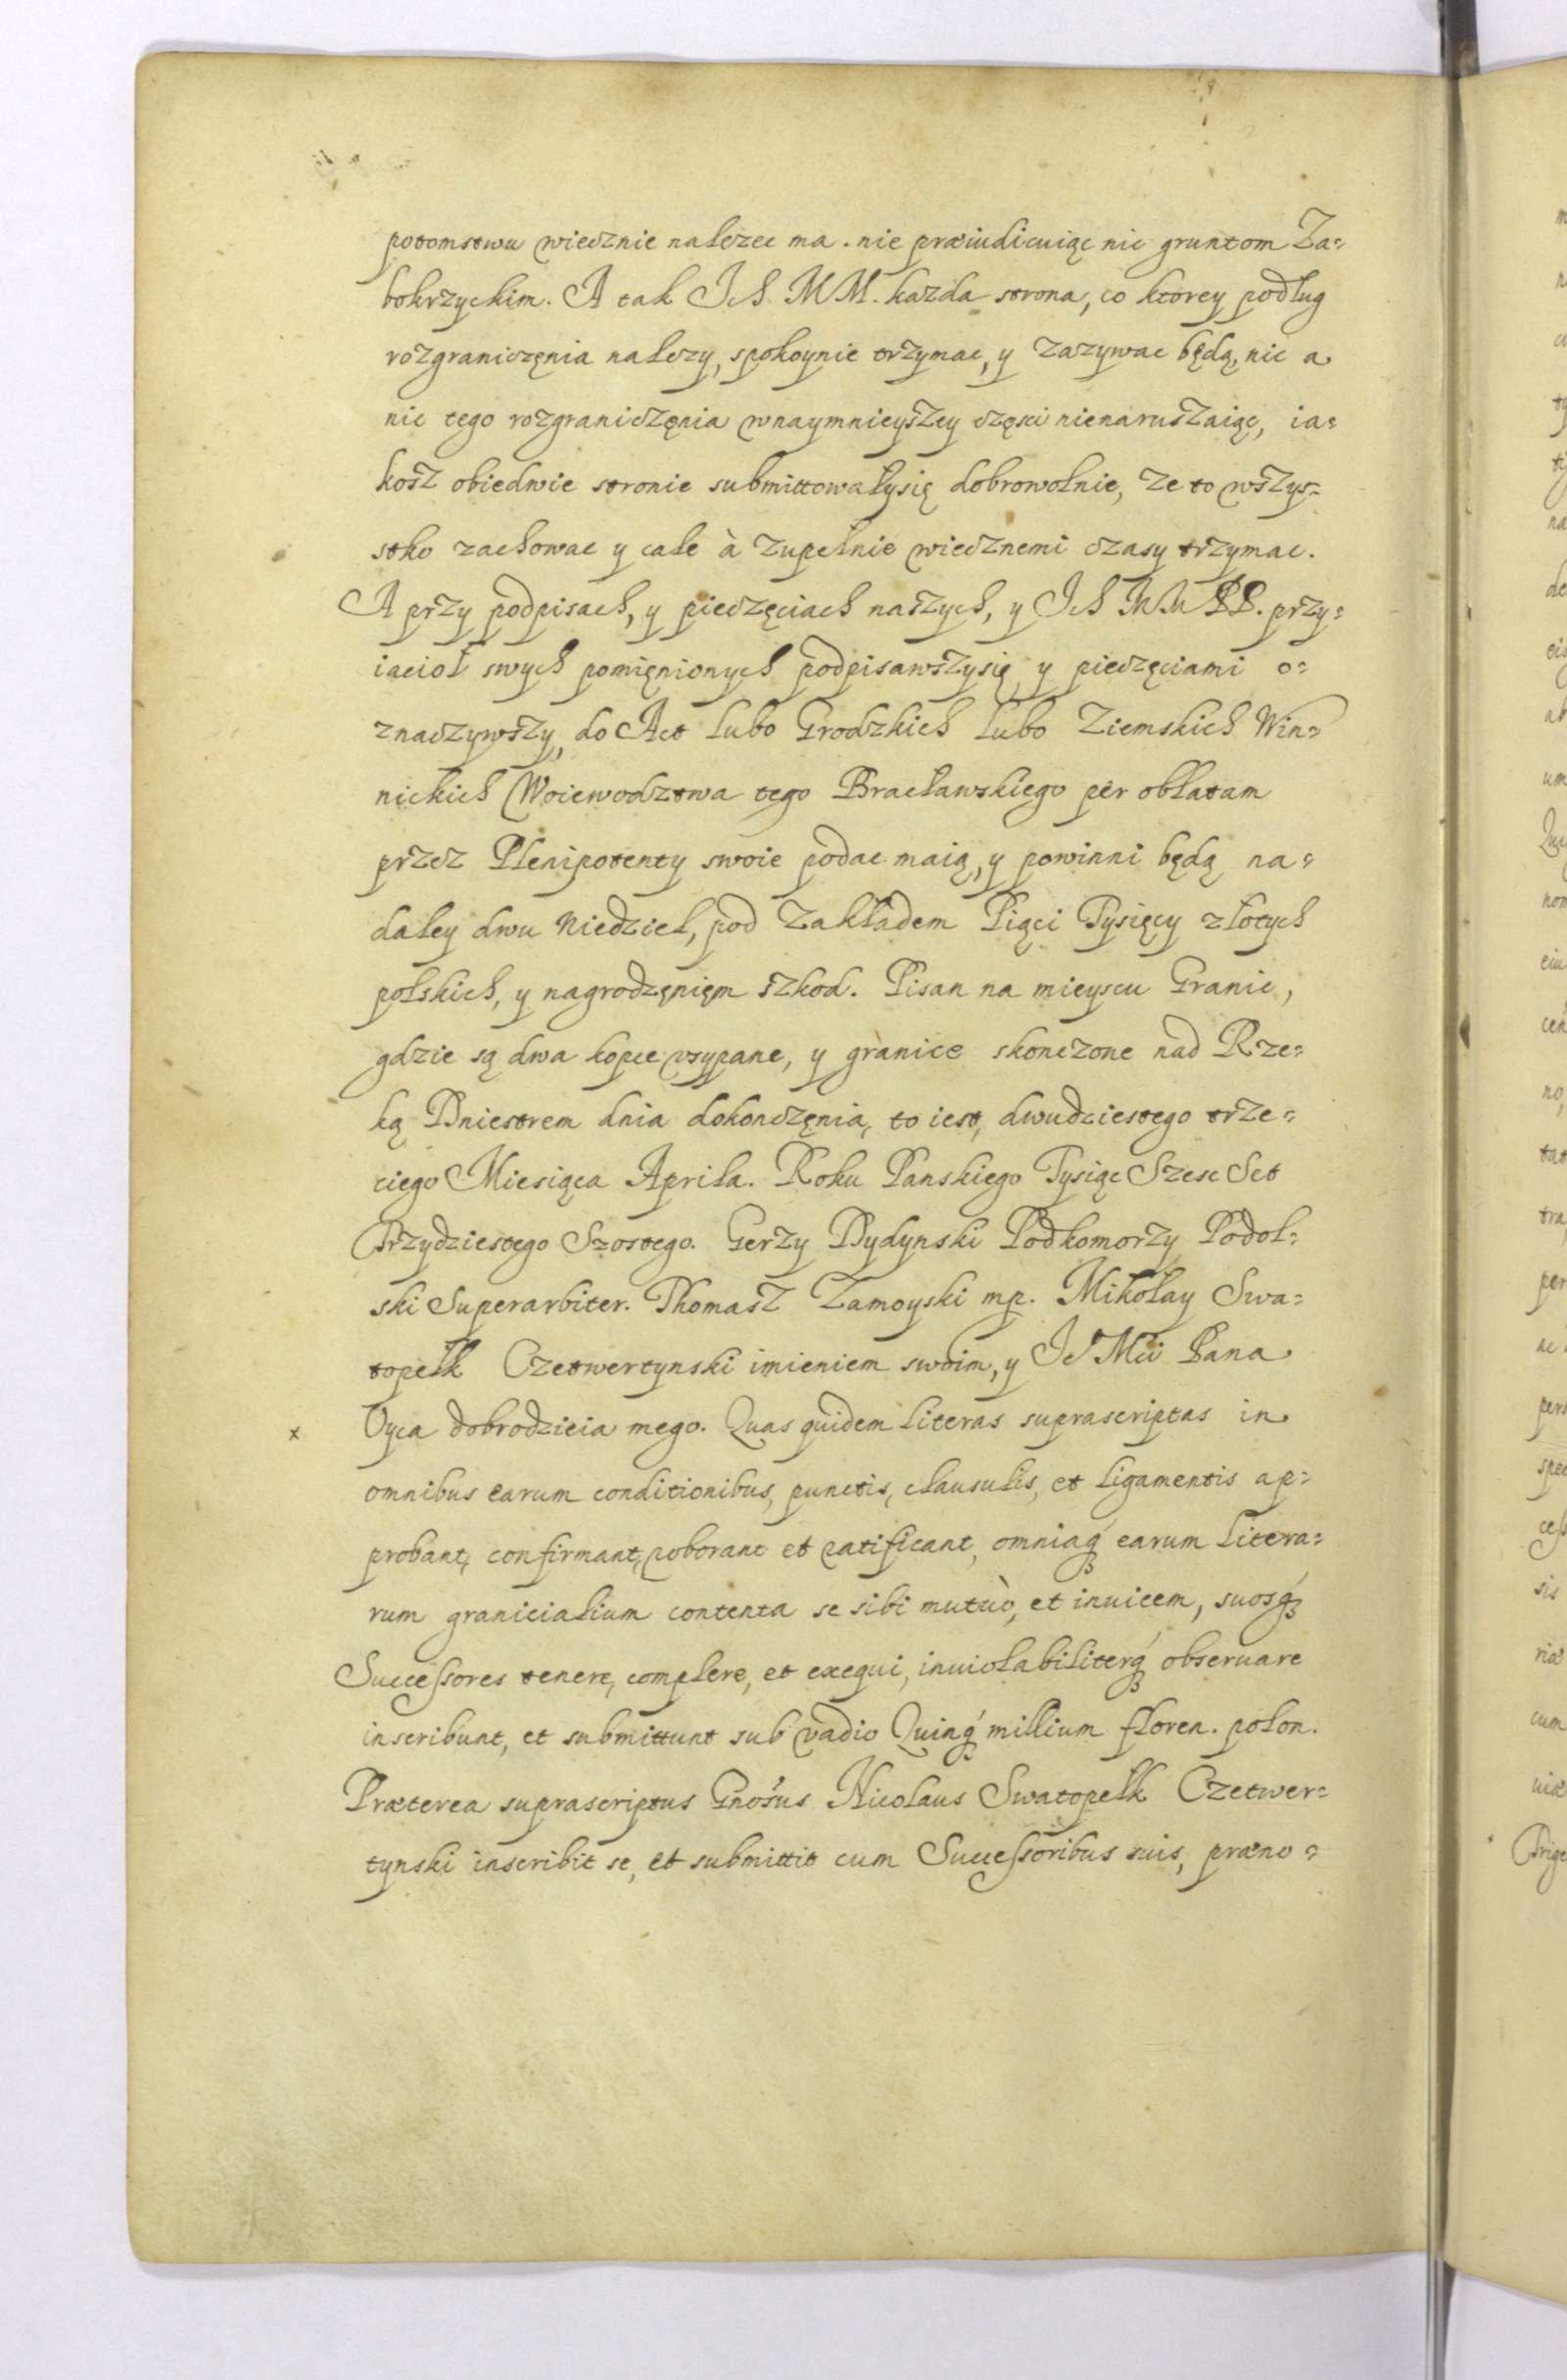 potomstwu wiecznie należec ma. nie præiudicuiąc nic gruntom Za=
bokrzyckim. A tak Ich MM. kazda strona, co ktorey podług
rozgraniczęnia nalezy, spokoynie trzymac, y zazywac będą, nic a
nic tego rozgraniczęnia wnaymnieyszey częsci nienaruszaiąc, ia=
kosz obiedwie stronie submittowałysię dobrowolnie, ze to wszys=
stko zachowac y cale à zupełnie wiecznemi czasy trzymac.
A przy podpisach, y pieczęciach naszych, y Ich MM PP. przy=
iacioł swych pomięnionych podpisawszysię y pieczęciami o=
znaczywszy, do Act lubo Grodzkich lubo Ziemskich Win=
nickich Woiewodztwa tego Bracławskiego per oblatam
przez Plenipotenty swoie podac maią, y powinni będą na=
daley dwu Niedziel, pod Zakładem Pięci Tysięcy złotych
polskich, y nagrodzęnięm szkod. Pisan na mieyscu Granic,
gdzie są dwa kopce vsypane, y granice skonczone nad Rze=
ką Dniestrem dnia dokonczęnia, to iest, dwudziestego trze=
ciego Miesiąca Aprila. Roku Panskiego Tysiąc Szesc Set
Trzydziestego Szostego. Gerzy Dydynski Podkomorzy Podol=
ski Superarbiter. Thomasz Zamoyski mp. Mikołay Swa=
topełk Czetwertynski imieniem swoim, y Ie Mci Pana
x Oyca dobrodzieia mego. Quas quidem literas suprascriptas in
omnibus earum conditionibus, punctis, clausulis, et ligamentis ap=
probant, confirmant, roborant et ratificant, omniaq́ earum litera=
rum granicialium contenta se sibi mutuò, et inuicem, suosq́
Successores tenere, complere, et exequi, inuiolabiliterq́ obseruare
inscribunt, et submittunt sub vadio Quinq́ millium floren. polon.
Præterea suprascriptus Gnosus Nicolaus Swatopełk Czetwer=
tynski inscribit se, et submittit cum Successoribus suis, præno=